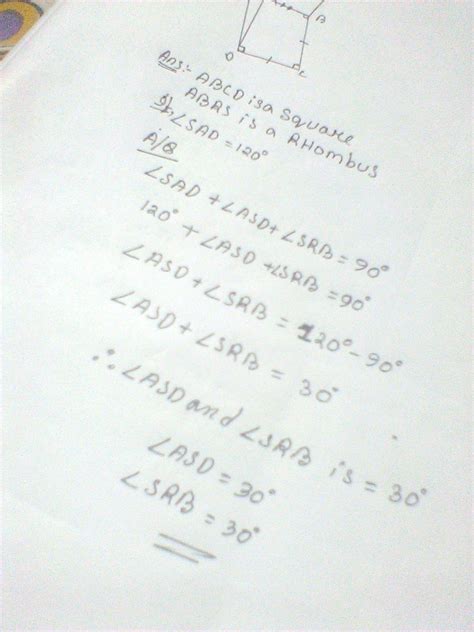 B
D
C
Ans:- ABCD is a Square
ABRS is a RHombus
If, ∠SAD = 120°
A/Q
∠SAD + ∠ASD + ∠SRB = 90°
120° + ∠ASD + ∠SRB = 90°
∠ASD + ∠SRB = 120° - 90°
∠ASD + ∠SRB = 30°
∴ ∠ASD and ∠SRB is = 30°
∠ASD = 30°
∠SRB = 30°